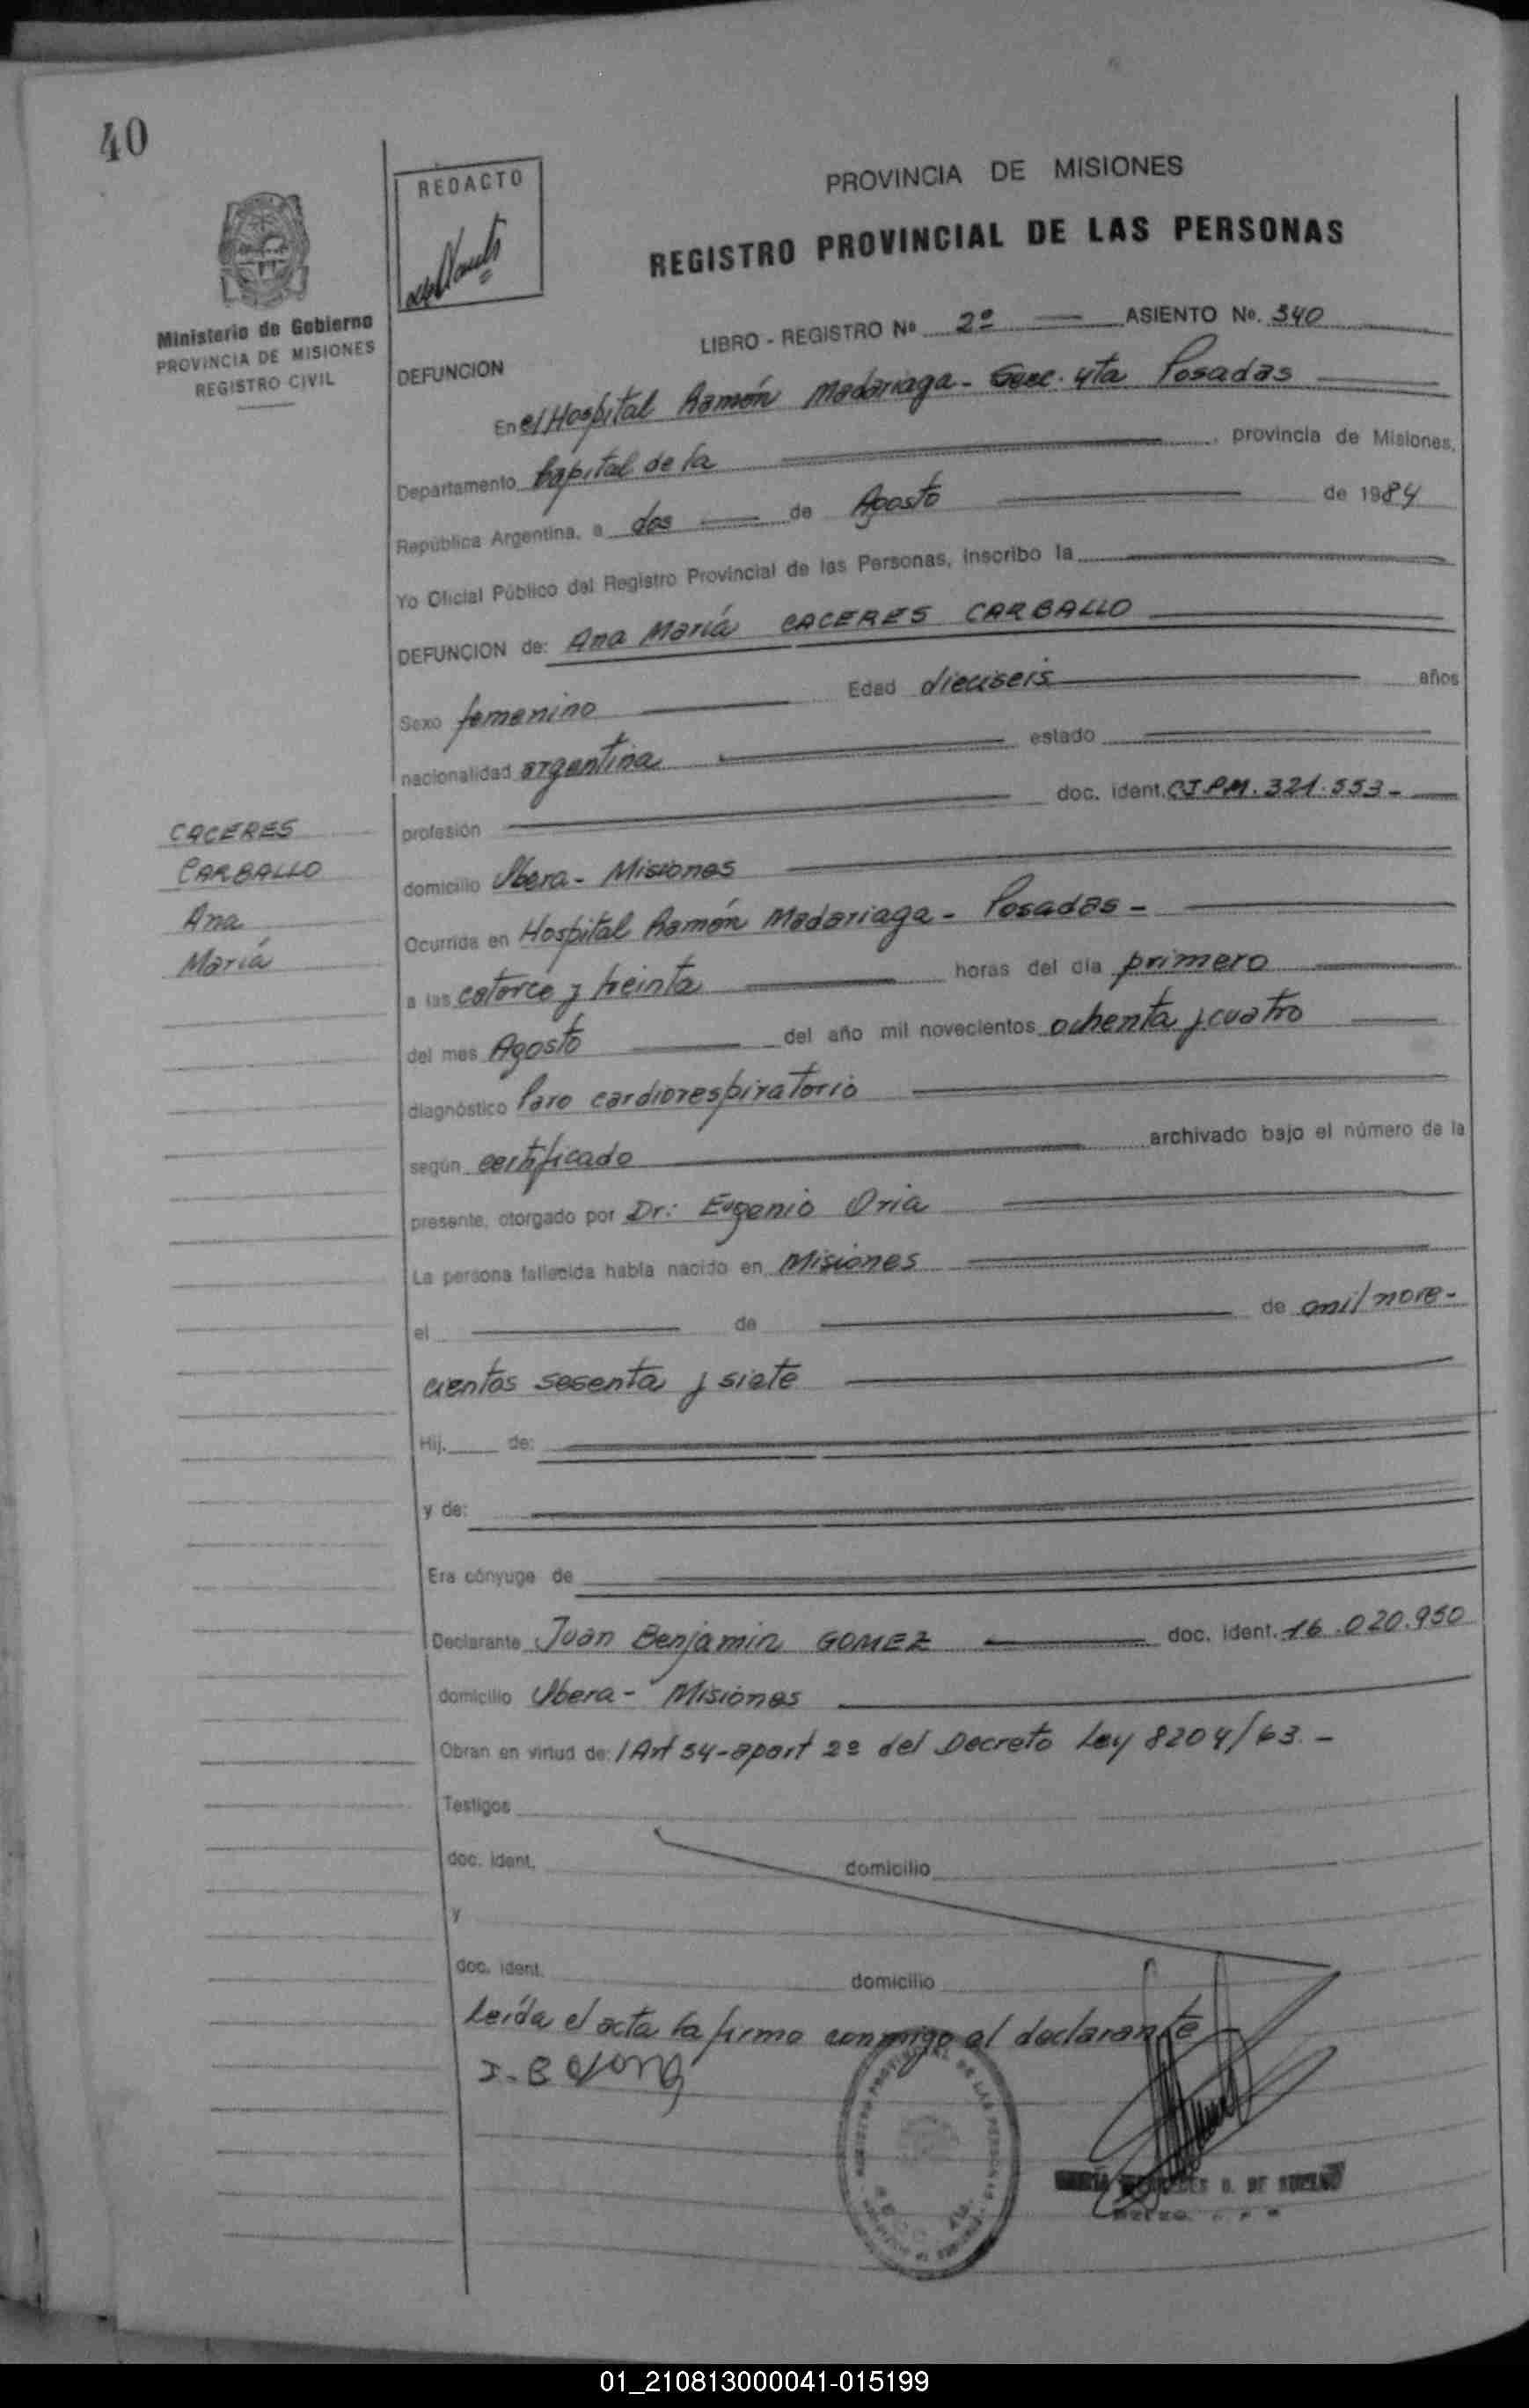 40
REDACTO
PROVINCIA DE MISIONES
REGISTRO PROVINCIAL DE LAS PERSONAS
Ministerio de Gobierno
PROVINCIA DE MISIONES
REGISTRO CIVIL
LIBRO - REGISTRO Nº 2º ASIENTO Nº. 340
DEFUNCION
En el Hospital Ramón Madariaga - Secc. 4ta Posadas
Departamento Capital de la , provincia de Misiones,
República Argentina, a dos de Agosto de 1984
Yo Oficial Público del Registro Provincial de las Personas, inscribo la
DEFUNCION de: Ana María CACERES CARBALLO
Sexo femenino Edad dieciseis años
nacionalidad argentina estado
profesión doc. ident. CI.PM. 321.553-
CACERES
CARBALLO
Ana
María
domicilio Obera - Misiones
Ocurrida en Hospital Ramón Madariaga - Posadas -
a las catorce y treinta horas del día primero
del mes Agosto del año mil novecientos ochenta y cuatro
diagnóstico Paro cardiorespiratorio
según certificado archivado bajo el número de la
presente, otorgado por Dr: Eugenio Oria
La persona fallecida había nacido en Misiones
el de de mil nove-
cientos sesenta y siete
Hij. de:
y de:
Era cónyuge de
Declarante Juan Benjamin GOMEZ doc. ident. 16.020.950
domicilio Obera - Misiones
Obran en virtud de: / Art 54 - apart 2º del Decreto Ley 8204/63. -
Testigos
doc. ident. domicilio
y
doc. ident. domicilio
Leída el acta la firma conmigo el declarante
J-B
01_210813000041-015199